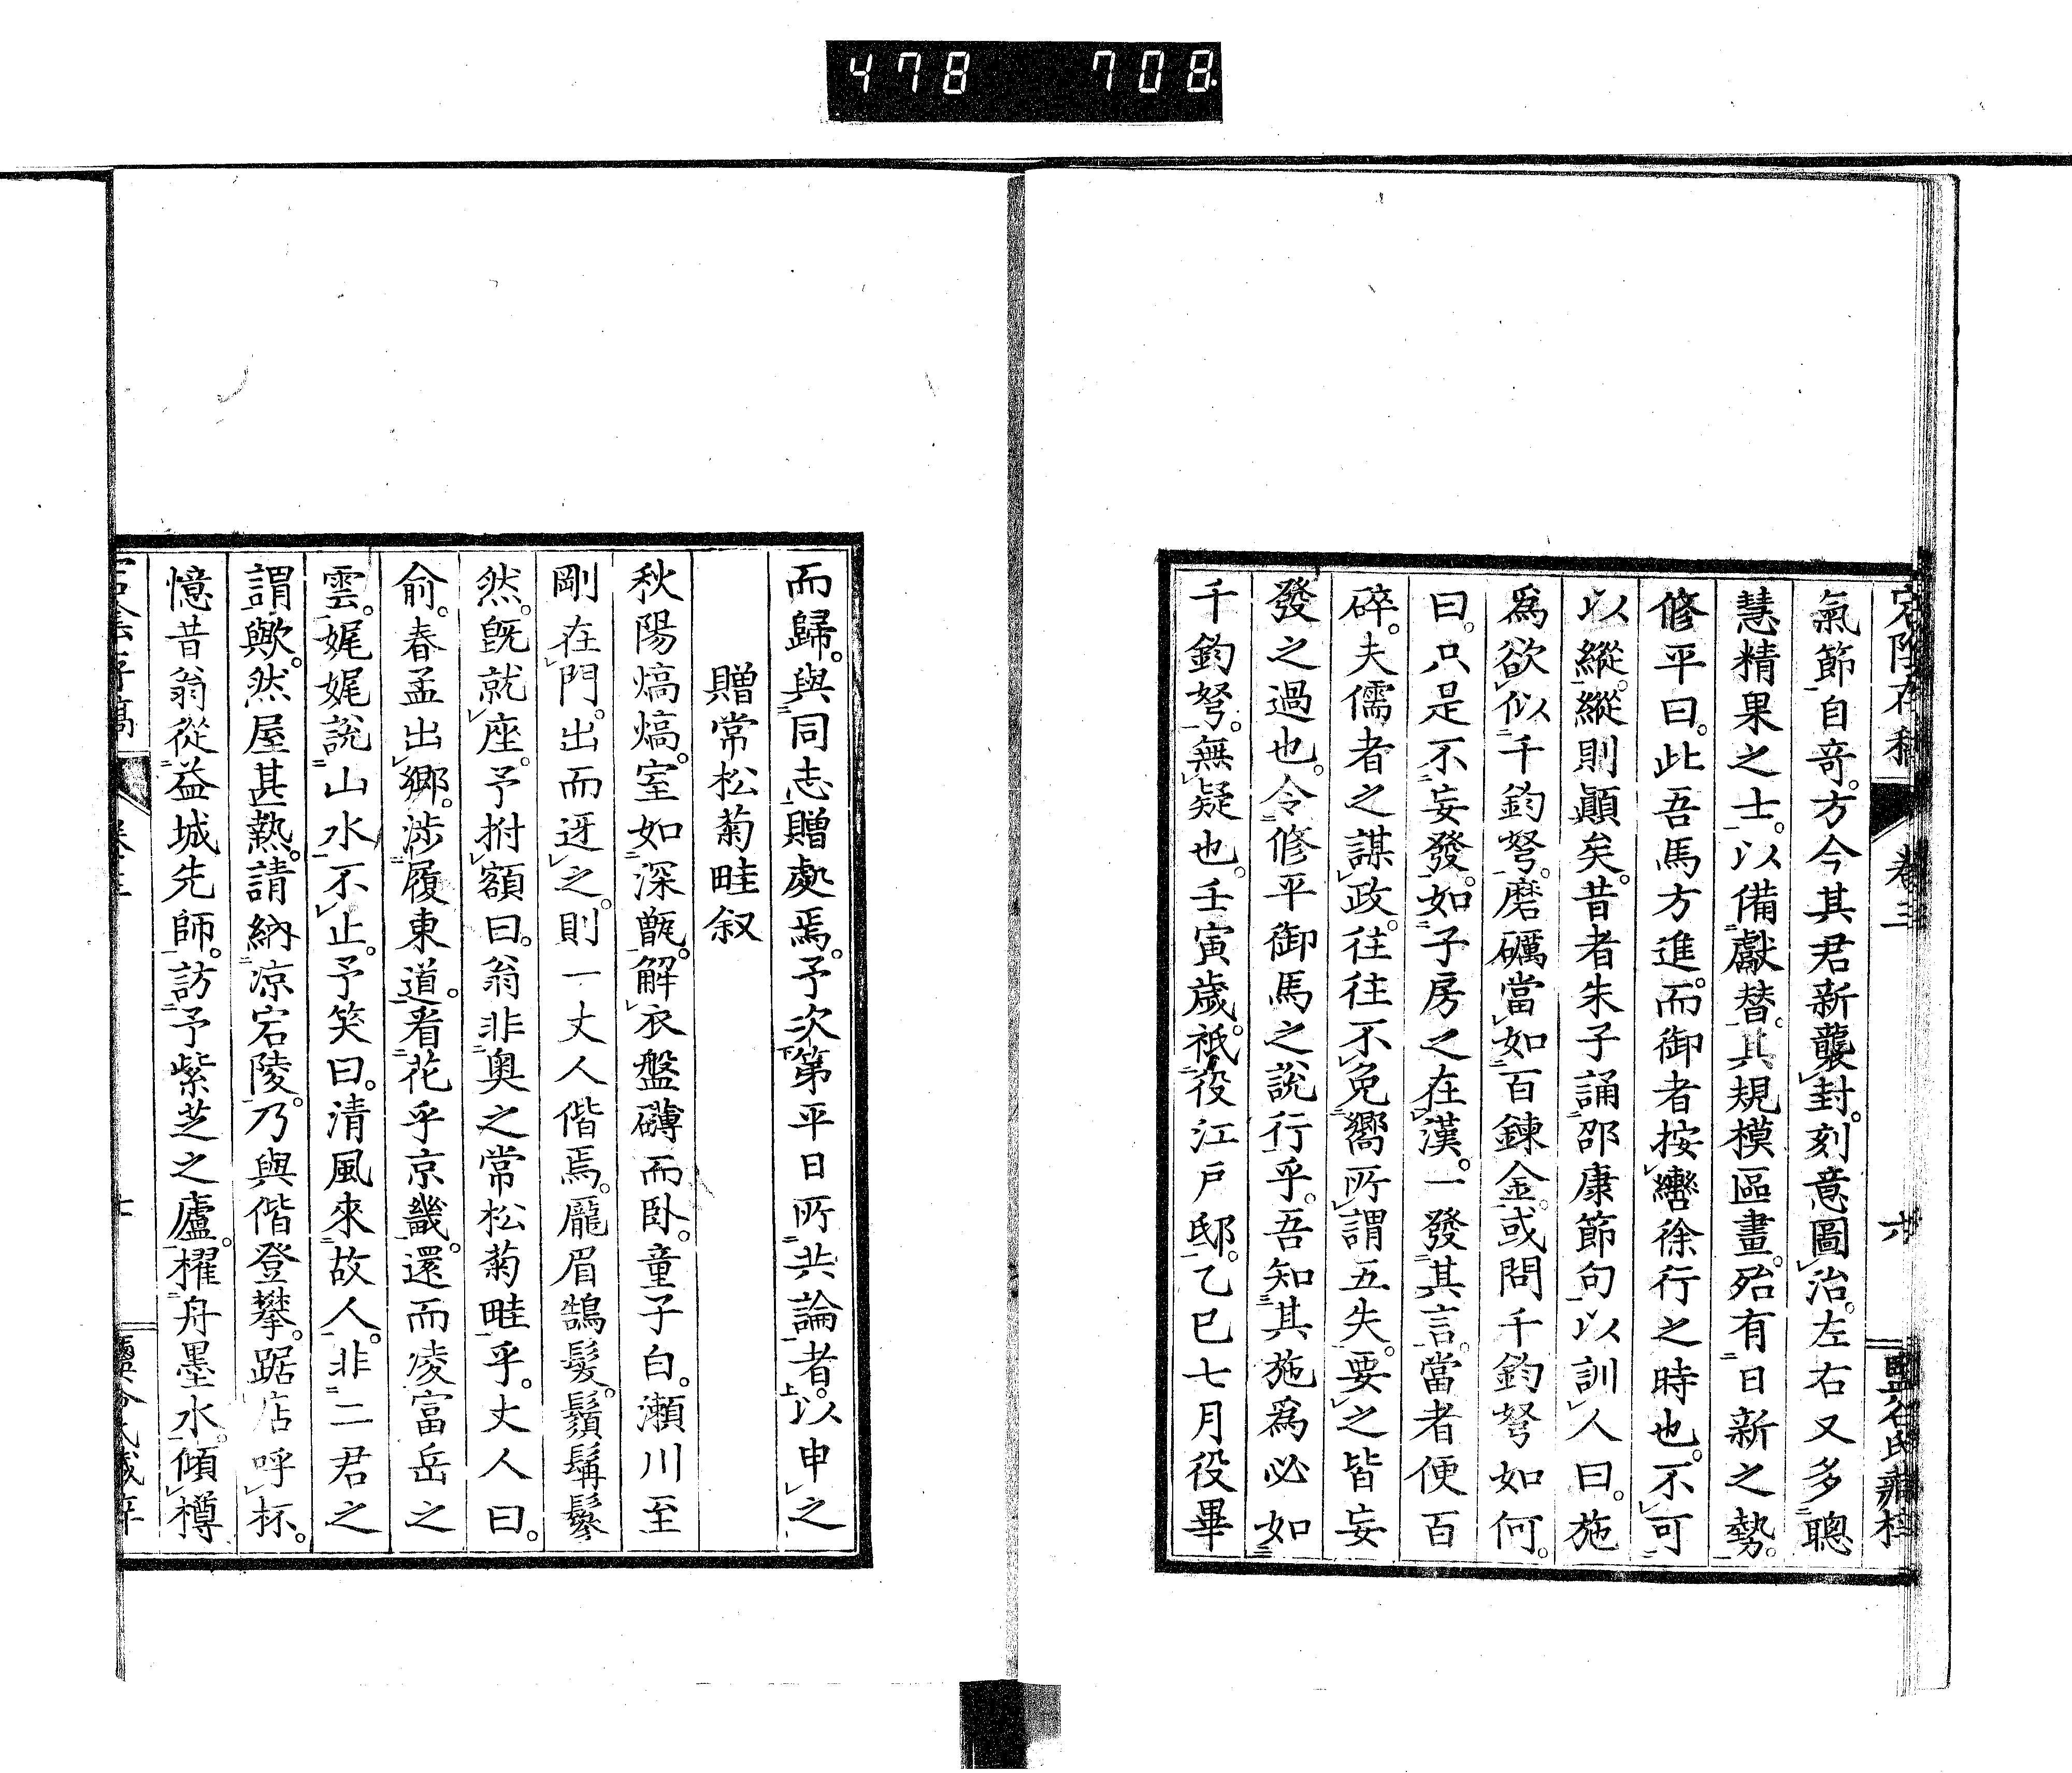 478 708.
宕陰存稿 卷三 六
氣節自奇。方今其君新襲封。刻意圖治。左右又多聰
慧精果之士。以備獻替。其規模區畫。殆有日新之勢。
修平曰。此吾馬方進。而御者按轡徐行之時也。不可
以縱。縱則顚矣。昔者朱子誦邵康節句以訓人曰。施
爲欲似千鈞弩。磨礪當如百鍊金。或問千鈞弩如何。
曰。只是不妄發。如子房之在漢。一發其言。當者便百
碎。夫儒者之謀政。往往不免嚮所謂五失。要之皆妄
發之過也。令修平御馬之說行乎。吾知其施爲必如
千鈞弩。無疑也。壬寅歲。祗役江戸邸。乙巳七月役畢
而歸。與同志贈處焉。予次第平日所共論者。以申之
贈常松菊畦叙
秋陽熇熇。室如深甑。解衣盤礴而卧。童子白。瀬川至
剛在門。出而迓之。則一丈人偕焉。厖眉鵠髮。鬚髯鬖
然。既就座。予拊額曰。翁非奥之常松菊畦乎。丈人曰。
俞。春孟出鄕。渉履東道。看花乎京畿。還而凌富岳之
雲。娓娓說山水不止。予笑曰。清風來故人。非二君之
謂歟。然屋甚熱。請納凉宕陵。乃與偕登攀。踞店呼杯。
憶昔翁從益城先師。訪予紫芝之廬。櫂舟墨水。傾樽